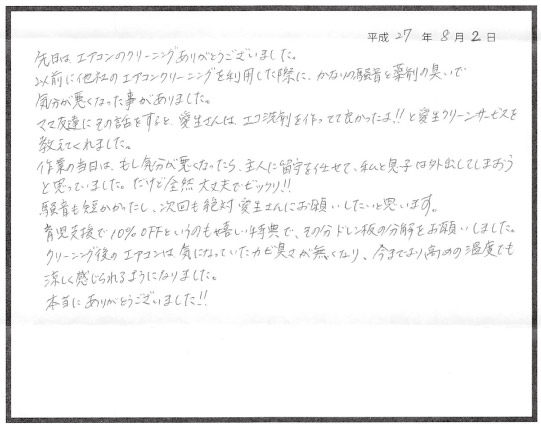 平成 27 年 8 月 2 日
先日は エアコンのクリーニングありがとうございました。
以前に他社の エアコンクリーニングを利用した際に、かなりの騒音と薬剤の臭いで
気分が悪くなった事がありました。
ママ友達にその話をすると、愛生さんは、エコ洗剤を作ってて良かったよ!!と愛生クリーンサービスを
教えてくれました。
作業の当日は、もし気分が悪くなったら、主人に留守を任せて、私と息子は外出してしまおう
と思っていました。だけど全然大丈夫でビックリ!!
騒音も短かかったし、次回も絶対愛生さんにお願いしたいと思います。
育児支援で10%OFFというのも嬉しい特典で、その分ドレン板の分解をお願いしました。
クリーニング後の エアコンは 気になっていたカビ臭さが無くなり、今までより高めの温度でも
涼しく感じられるようになりました。
本当に ありがとうございました!!